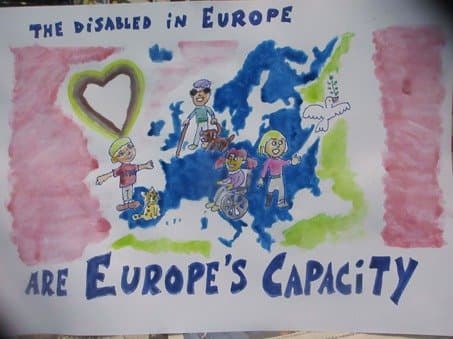 THE DISABLED IN EUROPE
ARE EUROPE'S CAPACITY